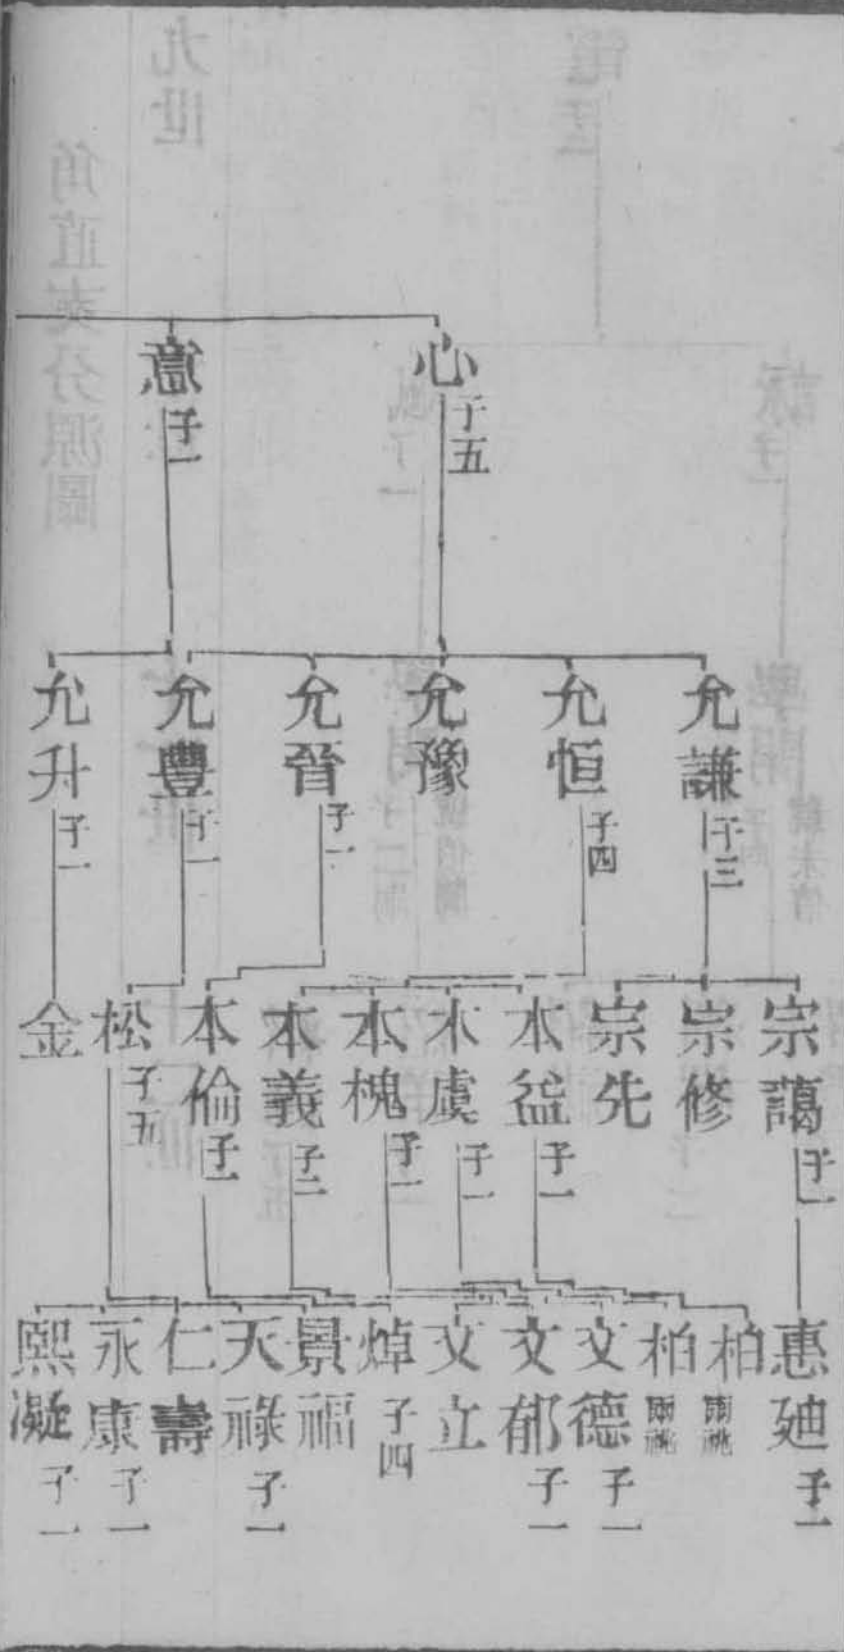 心 子五
憲 子一
允謙 子三
允恒 子四
允豫
允晉 子一
允豐 子一
允升 子一
宗藹 子一
宗修
宗先
本益 子一
本虞 子一
本槐 子一
本義 子二
本倫 子一
松 子五
金
惠廸 子一
柏 兼祧
柏 兼祧
文德 子一
文郁 子一
文立
焯 子四
景福
天祿 子一
仁壽
永康 子一
熙凝 子一